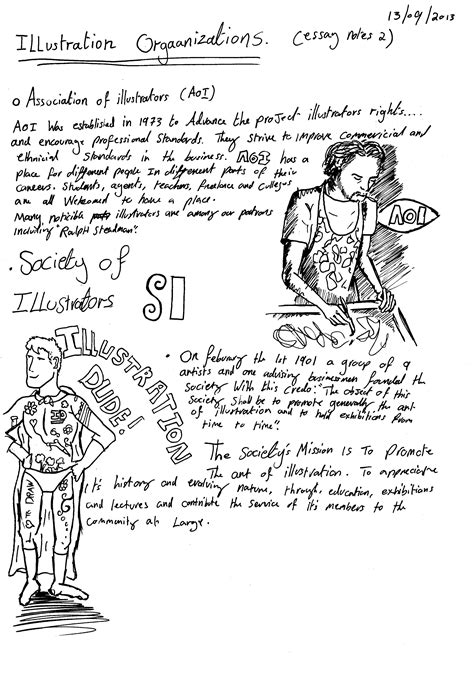 13/09/2013
Illustration Orgaanizations. (essay notes 2)
o Association of illustrators (AOI)
AOI was established in 1973 to Advance the project illustrators rights....
and encourage professional Standards. They strive to improve commericial and
ethnicial Standards in the business. AOI has a
place for different people In different parts of their
careers. Students, agents, teachers, freelance and
are all Welcomed to have a place.
Many noticible illustrators are among our patrons
including "Ralph Steadman".
AOI
• Society of
Illustrators SI
ILLUSTRATION
DUDE!
• On february the 1st 1901 a group of 9
artists and one advising businessmen founded the
Society With this Credo: "The object of this
Society Shall be to promote generally the art
of illustration and to hold exhibitions from
time to time".
The Society's Mission is To Promote
The art of illustration. To appreciate
It's history and evolving nature, through, education, exhibitions
and lectures and contribute the service of its members to the
community at Large.
DRAW